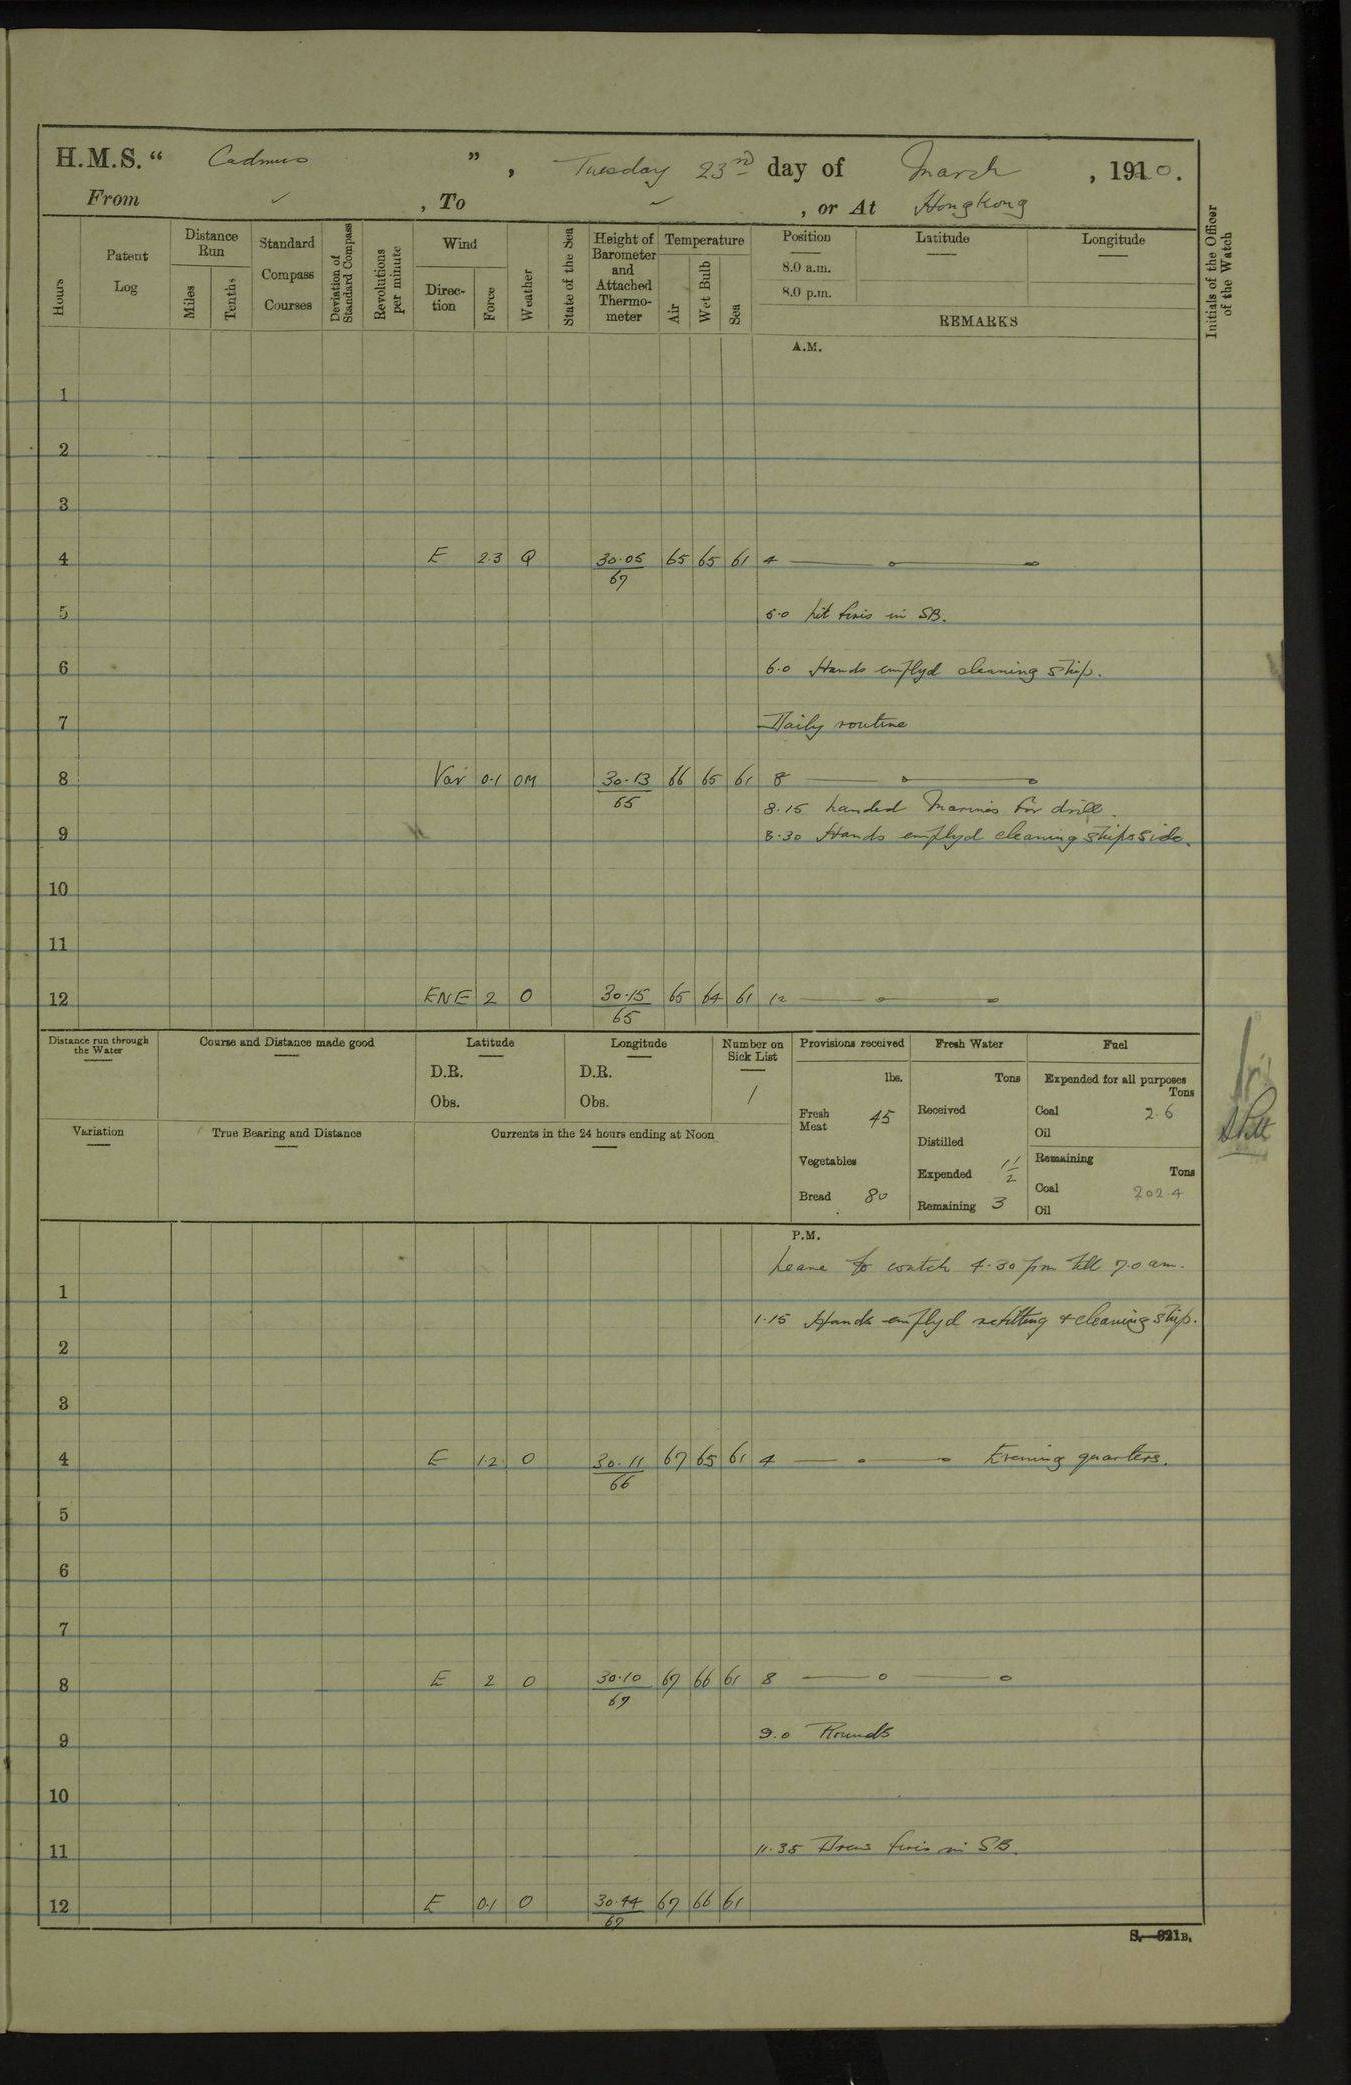 H.M.S. “ Cadmus ”, Tuesday 23rd day of March, 1920.
From ✓, To ✓, or At Hongkong
Hours
Patent Log
Distance Run
Miles
Tenths
Standard Compass Courses
Deviation of Standard Compass
Revolutions per minute
Wind
Direc-tion
Force
Weather
State of the Sea
Height of Barometer and Attached Thermo-meter
Temperature
Air
Wet Bulb
Sea
Position
8.0 a.m.
8.0 p.m.
Latitude
Longitude
REMARKS
Initials of the Officer of the Watch
A.M.
1
2
3
4 E 2.3 Q 30.05/67 65 65 61 4
5 5.0 Lit fires in SB.
6 6.0 Hands emplyd cleaning ship.
7 Daily routine
8 Var 0.1 OM 30.13/65 66 65 61 8
8.15 Landed Marines for drill.
9 8.30 Hands emplyd cleaning ships side.
10
11
12 ENE 2 O 30.15/65 65 64 61 12
Distance run through the Water
Course and Distance made good
Latitude
D.R.
Obs.
Longitude
D.R.
Obs.
Number on Sick List
1
Provisions received
lbs.
Fresh Meat 45
Vegetables
Bread 80
Fresh Water
Tons
Received
Distilled
Expended 1 1/2
Remaining 3
Fuel
Expended for all purposes
Tons
Coal 2.6
Oil
Remaining
Tons
Coal 202.4
Oil
Variation
True Bearing and Distance
Currents in the 24 hours ending at Noon
P.M.
Leave to watch 4.30 pm till 7.0 am.
1
1.15 Hands emplyd refitting & cleaning ship.
2
3
4 E 1.2 O 30.11/66 67 65 61 4 Evening quarters.
5
6
7
8 E 2 O 30.10/67 67 66 61 8
9 9.0 Rounds
10
11 11.35 Drew fires in SB.
12 E 0.1 O 30.44/67 67 66 61
S.—321B.